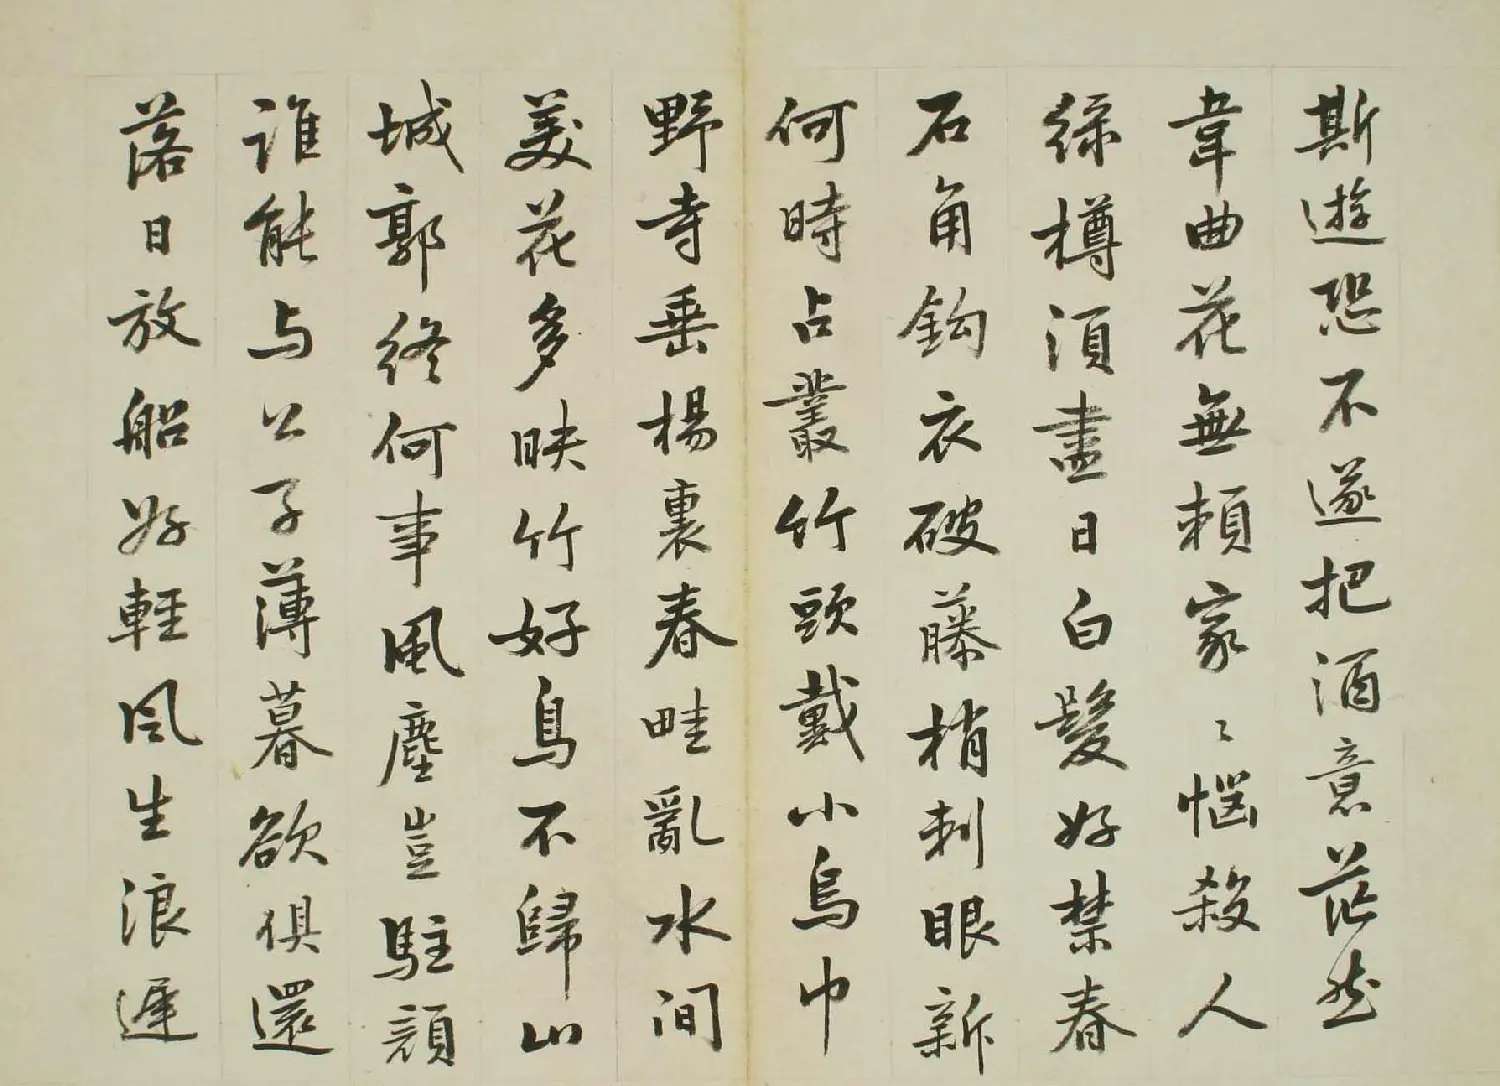 斯遊恐不遂把酒意茫然
韋曲花無賴家〻惱殺人
綠樽須盡日白髮好禁春
石角鈎衣破藤梢刺眼新
何時占叢竹頭戴小烏巾
野寺垂楊裏春畦亂水间
美花多映竹好鳥不歸山
城郭終何事風塵豈駐顏
誰能与公子薄暮欲俱還
落日放船好輕風生浪遲